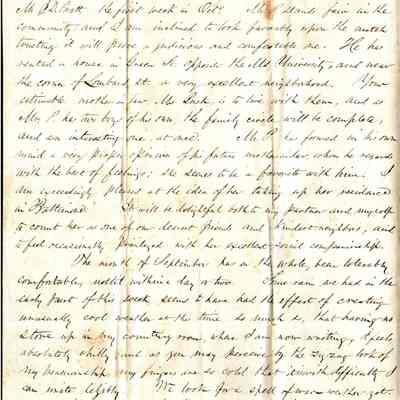 Mr. P. the first week in Octr. Mr. stands fair in the
community, and I am inclined to look favorably upon the match
trusting it will prove a judicious and comfortable one. He has
rented a house in Green St. opposite the Md. University, and near
the corner of Lombard St. a very excellent neighborhood. Your
estimable mother in law Mrs. is to live with them, and as
Mr. P. has two boys of his own the family circle will be complete,
and an interesting one, at once. Mr. P. has formed in his own
mind a very proper opinion of his future mother in law, whom he regards
with the best of feelings; she seems to be a favorite with him. I
am exceedingly pleased at the idea of her taking up her residence
in Baltimore. It will be delightful both to my partner and myself
to count her as one of our dearest friends and kindest neighbors, and
to feel occasionally privileged with her excellent social companionship.
The month of September has on the whole, been tolerably
comfortable, until within a day or two. Some rain we had in the
early part of this week seems to have had the effect of creating
unusually cool weather at the time so much so, that having no
stove up in my counting room, where I am now writing, I feel
absolutely chilly and as you may perceive by the zigzag look of
my penmanship my fingers are so cold that it is with difficulty I
can write legibly. We look for a spell of warm weather yet.